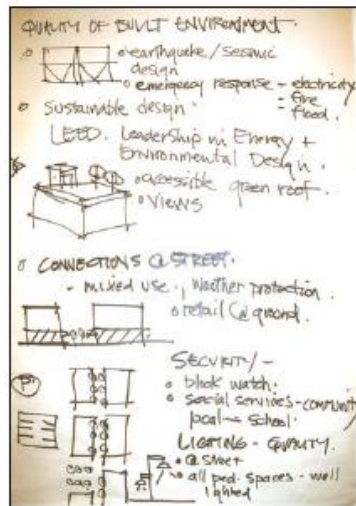 QUALITY OF BUILT ENVIRONMENT.
earthquake/seismic
design
emergency response - electricity
- fire
- flood.
Sustainable design
LEED. Leadership in Energy +
Environmental Design.
accessible green roof.
views
CONNECTIONS @ STREET.
- mixed use, weather protection.
retail @ ground.
SECURITY -
block watch.
social services - community
pool - school.
LIGHTING - QUALITY.
@ street
all ped. spaces - well
lighted